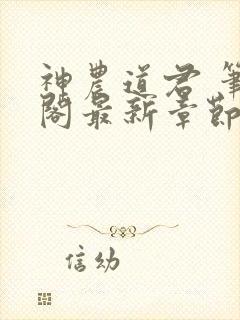 神農道君 筆
閣最新章節
信幼